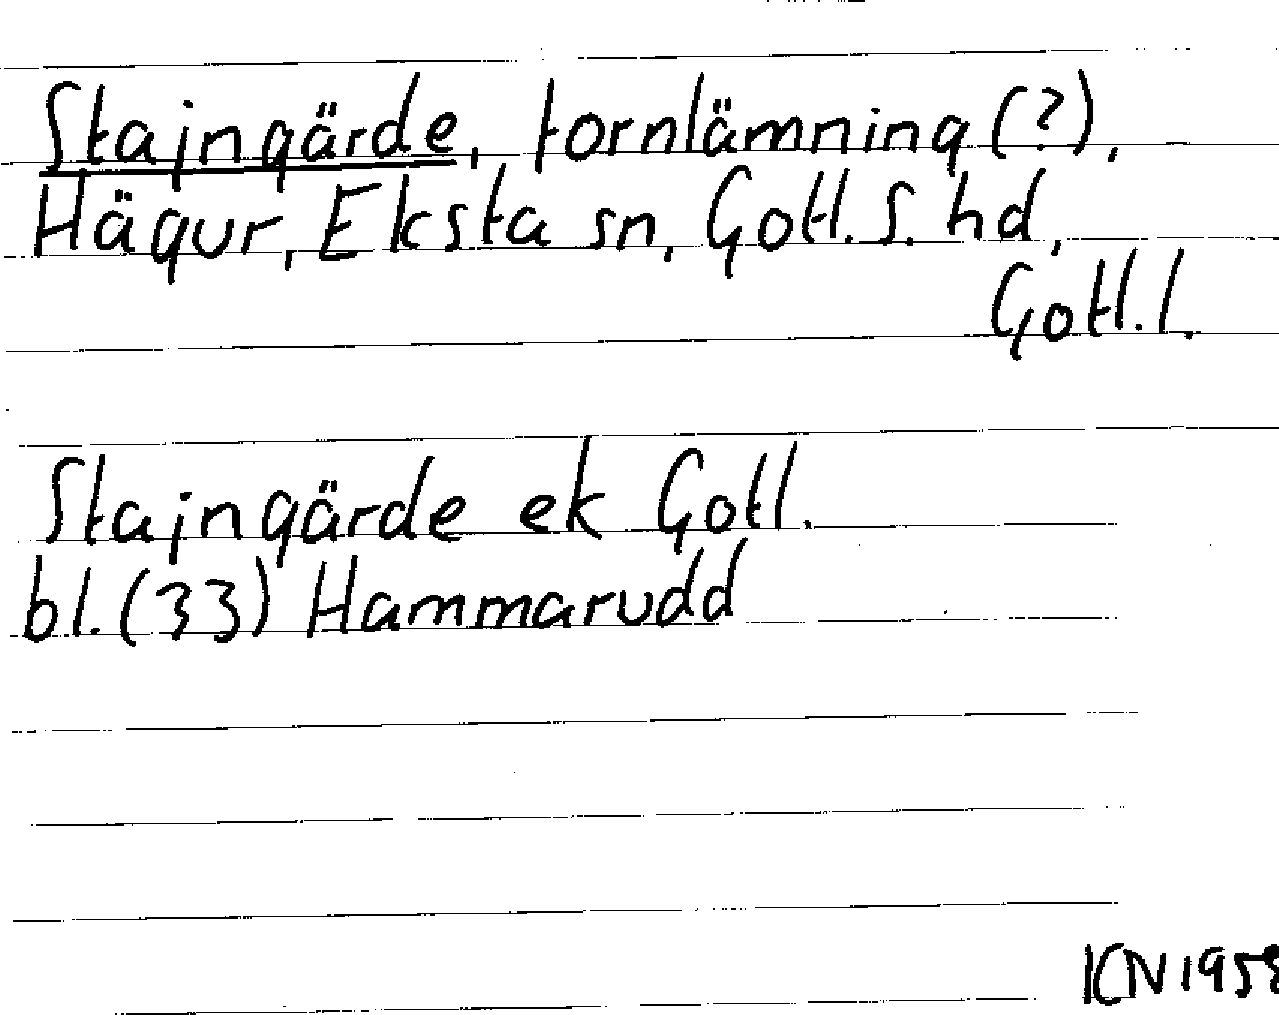 Stajngärde, fornlämning (?),
Hägur, Eksta sn, Gotl. S. hd,
Gotl. l.
Stajngärde ek Gotl.
bl. (33) Hammarudd